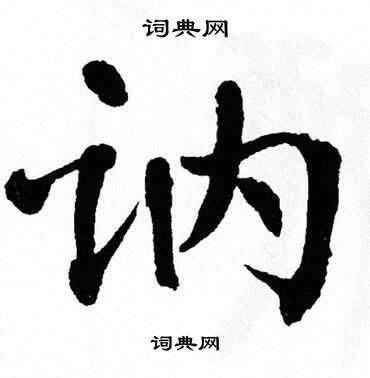 词典网
讷
词典网